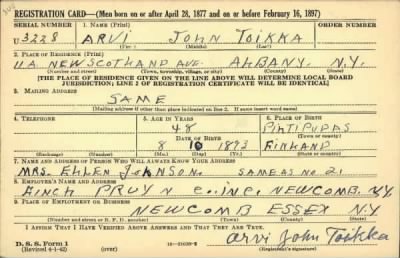 REGISTRATION CARD—(Men born on or after April 28, 1877 and on or before February 16, 1897)
SERIAL NUMBER 1. NAME (Print) ORDER NUMBER
U 3228 ARVI JOHN TOIKKA
(First) (Middle) (Last)
2. PLACE OF RESIDENCE (Print)
NEW SCOTLAND AVE. ALBANY. N.Y.
(Number and street) (Town, township, village, or city) (County) (State)
[THE PLACE OF RESIDENCE GIVEN ON THE LINE ABOVE WILL DETERMINE LOCAL BOARD
JURISDICTION; LINE 2 OF REGISTRATION CERTIFICATE WILL BE IDENTICAL]
3. MAILING ADDRESS
SAME
(Mailing address if other than place indicated on line 2. If same insert word same)
4. TELEPHONE 5. AGE IN YEARS 6. PLACE OF BIRTH
48 PIHTIPUDAS
DATE OF BIRTH (Town or county)
8 10 1893 FINLAND
(Exchange) (Number) (Mo.) (Day) (Yr.) (State or country)
7. NAME AND ADDRESS OF PERSON WHO WILL ALWAYS KNOW YOUR ADDRESS
MRS. ELLEN JOHNSON. SAME AS NO. 2.
8. EMPLOYER'S NAME AND ADDRESS
FINCH PRUYN INC. NEWCOMB. N.Y.
9. PLACE OF EMPLOYMENT OR BUSINESS
NEWCOMB ESSEX N.Y.
(Number and street or R. F. D. number) (Town) (County) (State)
I AFFIRM THAT I HAVE VERIFIED ABOVE ANSWERS AND THAT THEY ARE TRUE.
D. S. S. Form 1
(Revised 4-1-42) (over)
Arvi John Toikka
(Registrant's signature)